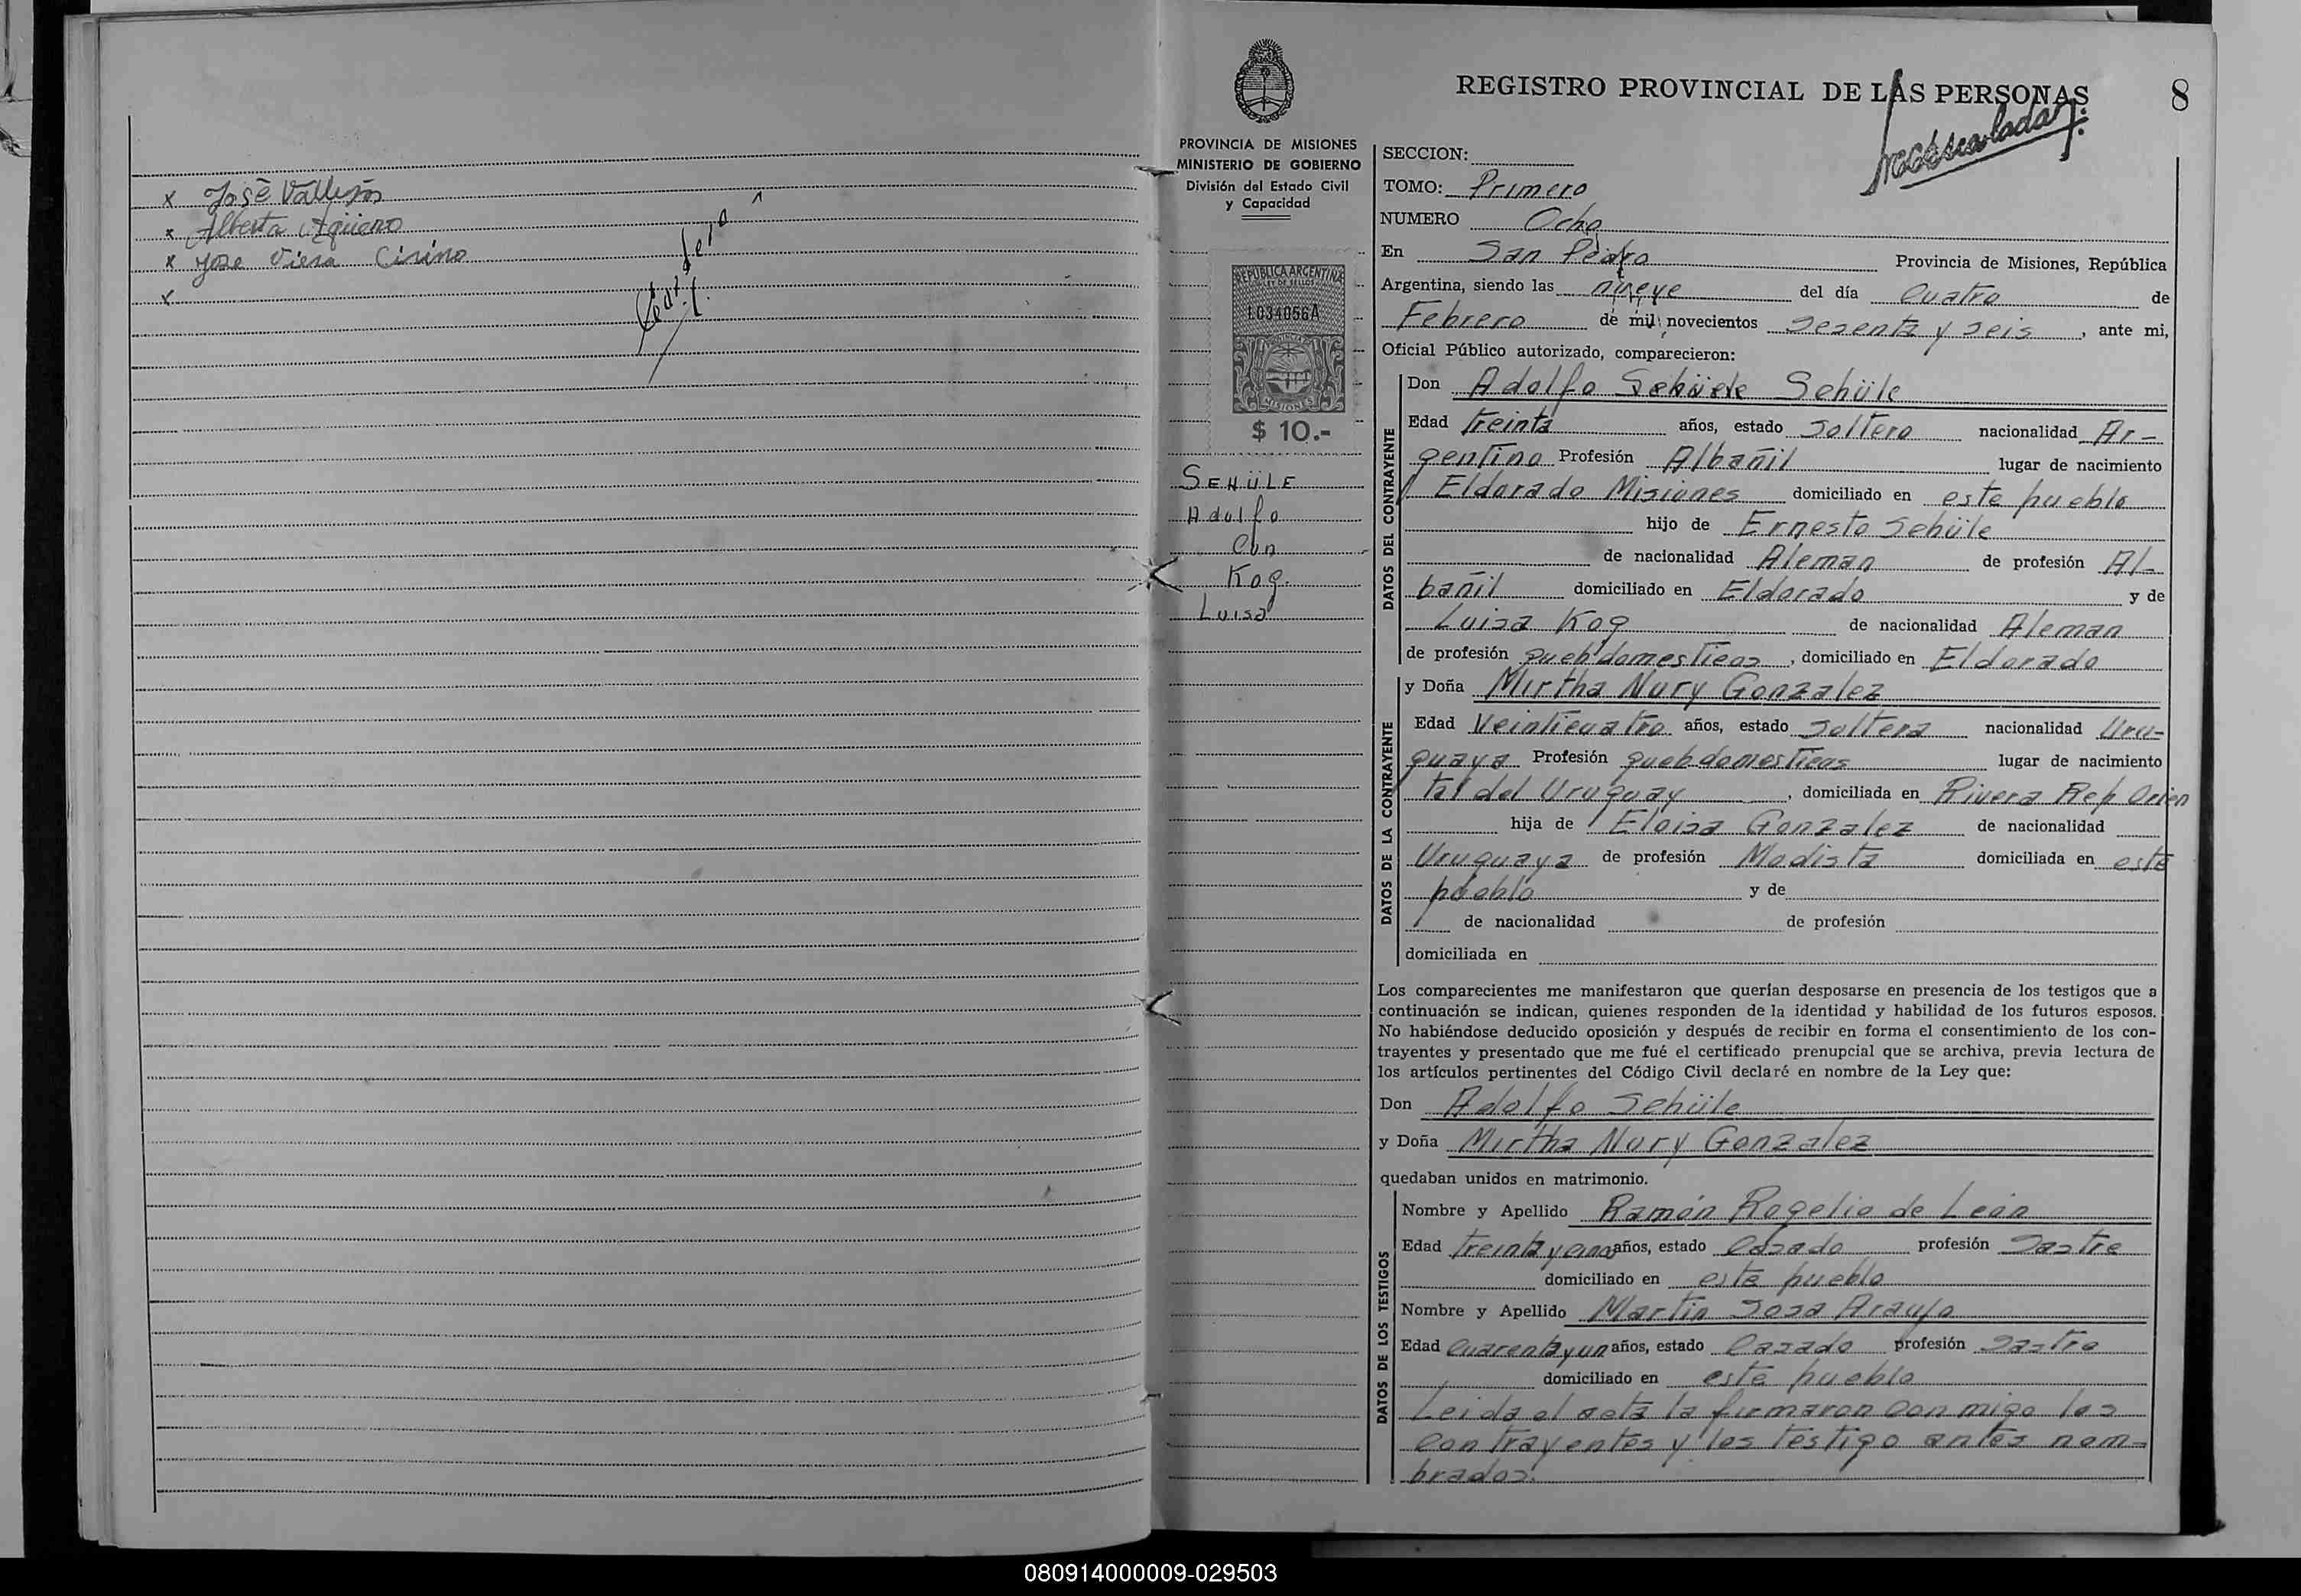 x José Vallejos
x Alberta Agüero
x Jose Viera Cirino
x
PROVINCIA DE MISIONES
MINISTERIO DE GOBIERNO
División del Estado Civil
y Capacidad
REPUBLICA ARGENTINA
LEY DE SELLOS
1034056A
MISIONES
$ 10.-
SEHÜLE
Adolfo
Con
Kog.
Luisa
REGISTRO PROVINCIAL DE LAS PERSONAS 8
SECCION:
TOMO: Primero
NUMERO Ocho
En San Pedro Provincia de Misiones, República
Argentina, siendo las nueve del día Cuatro de
Febrero de mil novecientos Sesenta y seis, ante mi,
Oficial Público autorizado, comparecieron:
Don Adolfo Sehüle
DATOS DEL CONTRAYENTE
Edad treinta años, estado soltero nacionalidad Ar-
gentino Profesión Albañil lugar de nacimiento
Eldorado Misiones domiciliado en este pueblo
hijo de Ernesto Sehüle
de nacionalidad Aleman de profesión Al-
bañil domiciliado en Eldorado y de
Luisa Kog de nacionalidad Aleman
de profesión queh domesticos, domiciliado en Eldorado
y Doña Mirtha Nury Gonzalez
DATOS DE LA CONTRAYENTE
Edad Veinticuatro años, estado soltera nacionalidad Uru-
guaya Profesión queh domesticos lugar de nacimiento
tal del Uruguay, domiciliada en Rivera Rep Orien
hija de Eloisa Gonzalez de nacionalidad
Uruguaya de profesión Modista domiciliada en este
pueblo y de
de nacionalidad de profesión
domiciliada en
Los comparecientes me manifestaron que querían desposarse en presencia de los testigos que a
continuación se indican, quienes responden de la identidad y habilidad de los futuros esposos.
No habiéndose deducido oposición y después de recibir en forma el consentimiento de los con-
trayentes y presentado que me fué el certificado prenupcial que se archiva, previa lectura de
los artículos pertinentes del Código Civil declaré en nombre de la Ley que:
Don Adolfo Sehüle
y Doña Mirtha Nury Gonzalez
quedaban unidos en matrimonio.
DATOS DE LOS TESTIGOS
Nombre y Apellido Ramón Rogelio de León
Edad treinta y años, estado Casado profesión Sastre
domiciliado en este pueblo
Nombre y Apellido Martin Sosa Araujo
Edad Cuarenta y un años, estado Casado profesión Sastre
domiciliado en este pueblo
Leida el acta la firmaron con migo los
contrayentes y los testigo antes nom-
brados.
080914000009-029503